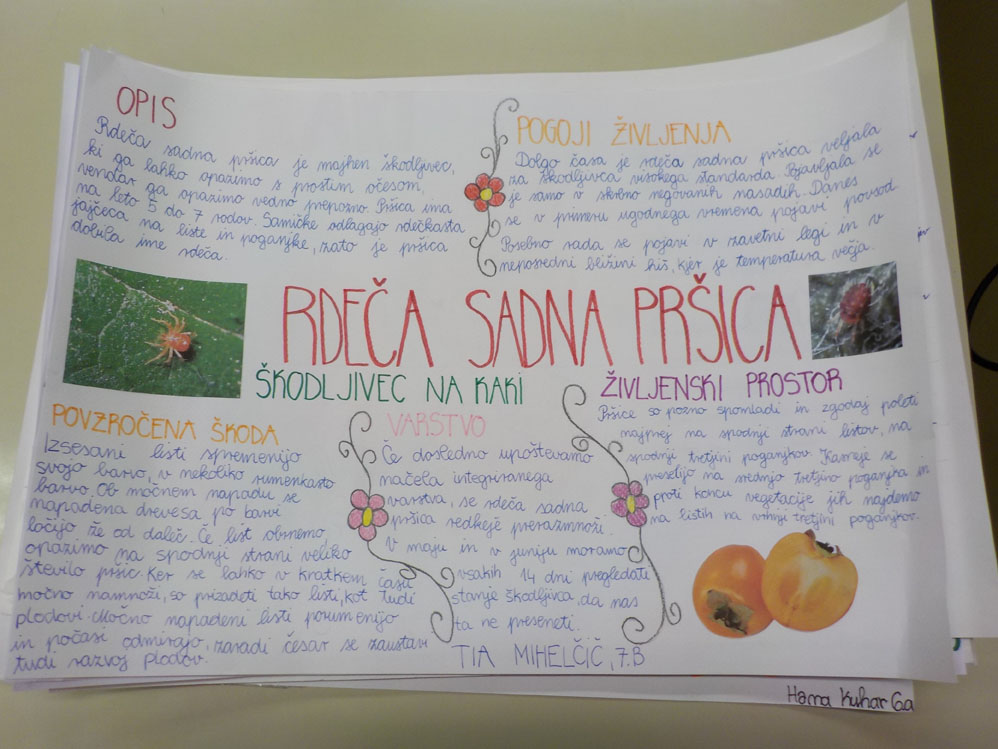 OPIS
Rdeča sadna pršica je majhen škodljivec,
ki ga lahko opazimo s prostim očesom,
vendar ga opazimo vedno prepozno. Pršica ima
na leto 5 do 7 rodov. Samičke odlagajo rdečkasta
jajčeca na liste in poganjke, zato je pršica
dobila ime rdeča.
POGOJI ŽIVLJENJA
Dolgo časa je rdeča sadna pršica veljala
za škodljivca visokega standarda. Pojavljala se
je samo v skrbno negovanih nasadih. Danes
se v primeru ugodnega vremena pojavi povsod.
Posebno rada se pojavi v zavetni legi in v
neposredni bližini hiš, kjer je temperatura večja.
RDEČA SADNA PRŠICA
ŠKODLJIVEC NA KAKI
POVZROČENA ŠKODA
Izsesani listi spremenijo
svojo barvo, v nekoliko rumenkasto
barvo. Ob močnem napadu se
napadena drevesa po barvi
ločijo že od daleč. Če list obrnemo,
opazimo na spodnji strani veliko
število pršic. Ker se lahko v kratkem času
močno namnoži, so prizadeti tako listi, kot tudi
plodovi. Močno napadeni listi porumenijo
in počasi odmirajo, zaradi česar se zaustavi
tudi razvoj plodov.
VARSTVO
Če dosledno upoštevamo
načela integriranega
varstva, se rdeča sadna
pršica redkeje prerazmnoži.
V maju in v juniju moramo
vsakih 14 dni pregledati
stanje škodljivca, da nas
ta ne preseneti.
ŽIVLJENSKI PROSTOR
Pršice so pozno spomladi in zgodaj poleti
najprej na spodnji strani listov, na
spodnji tretjini poganjkov. Kasneje se
preselijo na srednjo tretjino poganjka in
proti koncu vegetacije jih najdemo
na listih na vrhnji tretjini poganjkov.
TIA MIHELČIČ, 7.B
Hana Kuhar 6.a